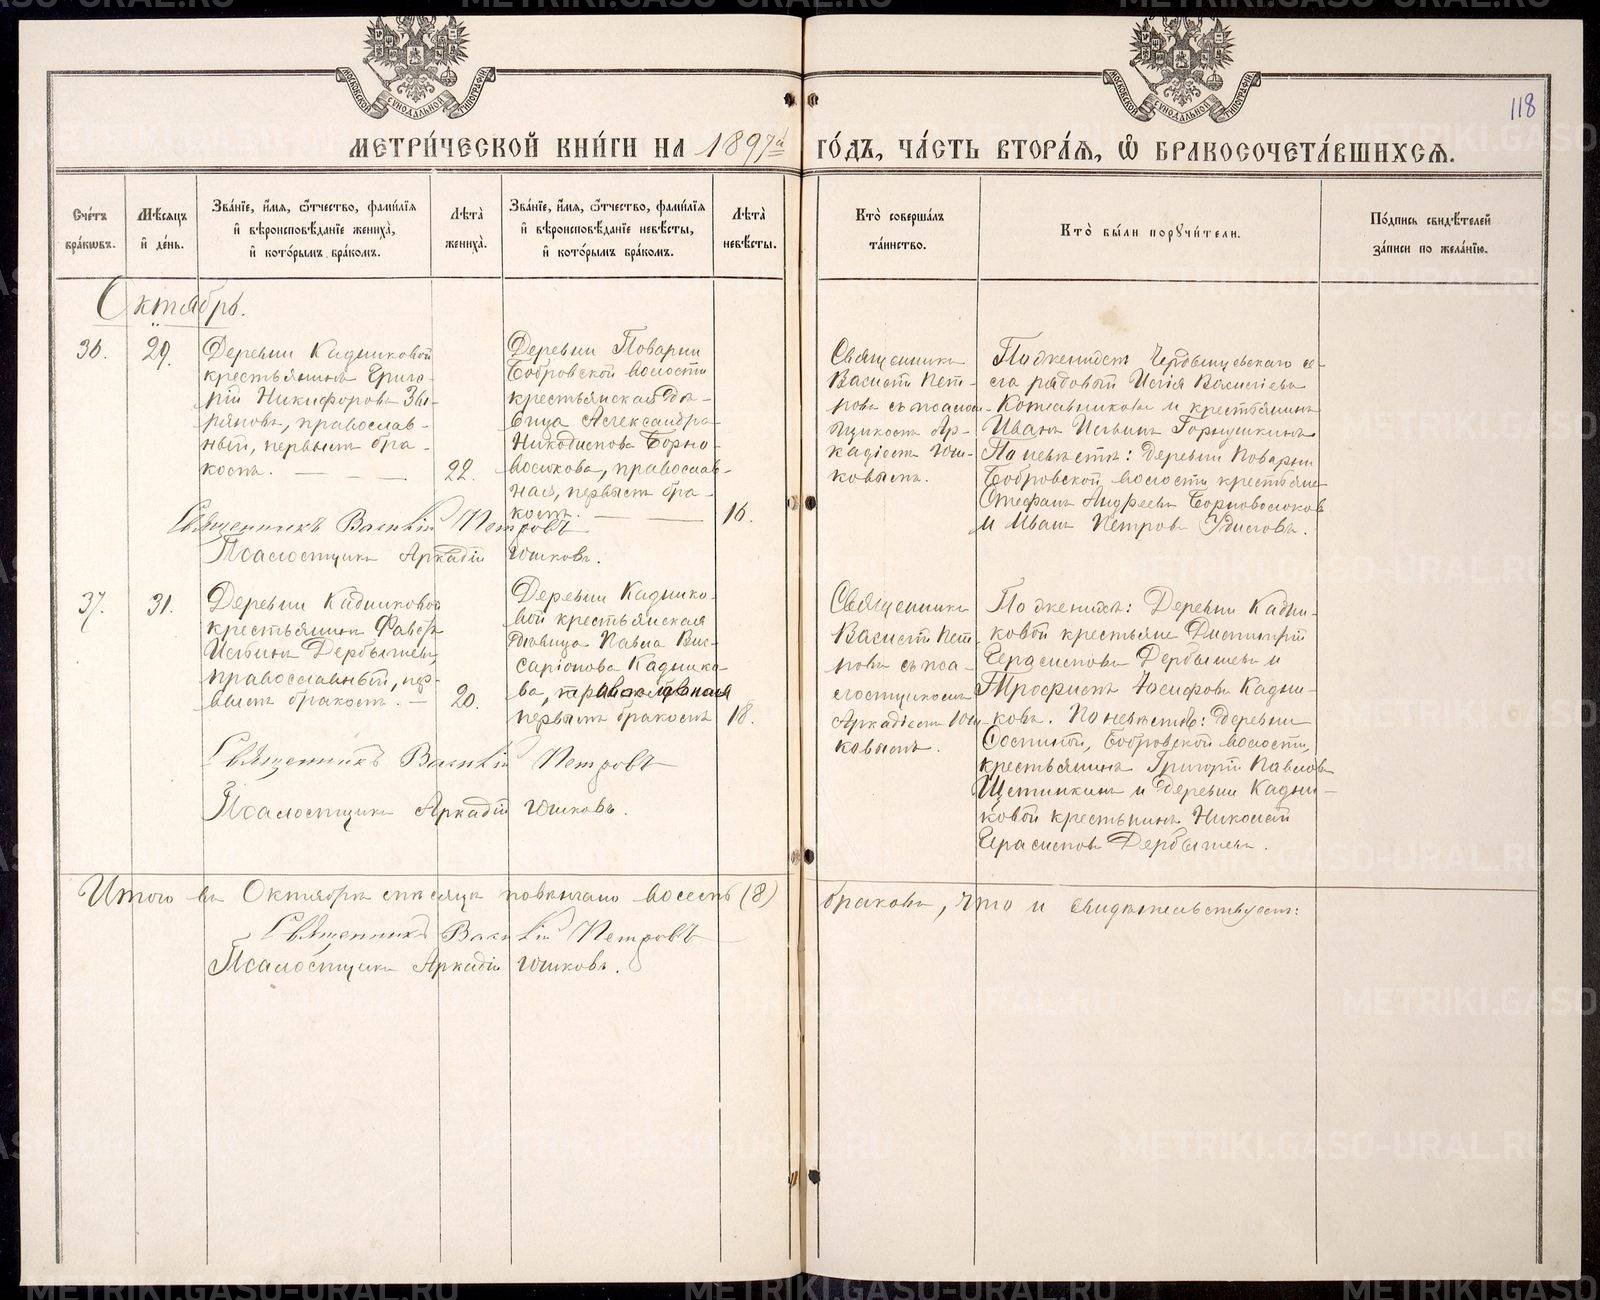 МОСКОВСКОЙ СѴНОДАЛЬНОЙ ТИПОГРАФІИ
МОСКОВСКОЙ СѴНОДАЛЬНОЙ ТИПОГРАФІИ
118
МЕТРИ́ЧЕСКОЙ КНИ́ГИ НА 1897й ГО́ДЪ, ЧА́СТЬ ВТОРА́Я, Ѽ БРАКОСОЧЕТА́ВШИХСЯ.
Сче́тъ
бра́ковъ.
Мѣ́сяцъ
и́ де́нь.
Зва́ніе, и́мя, ѻ́тчество, фами́лія
и́ вѣроисповѣ́даніе жениха̀,
и́ кото́рымъ бра́комъ.
Лѣта̀
жениха̀.
Зва́ніе, и́мя, ѻ́тчество, фами́лія
и́ вѣроисповѣ́даніе невѣ́сты,
и́ кото́рымъ бра́комъ.
Лѣта̀
невѣ́сты.
Кто̀ соверша́лъ
та́инство.
Кто̀ бы́ли пору́чители.
По́дпись свидѣ́телей
за́писи по жела́нію.
Октябрь.
36.
29.
Деревни Кадниковой
крестьянинъ Григо-
рій Никифоровъ Зы-
ряновъ, православ-
ный, первымъ бра-
комъ.
22.
Деревни Поварни
Бобровской волости
крестьянская дѣ-
вица Александра
Никодимова Черно-
волокова, православ-
ная, первымъ бра-
комъ.
16.
Священникъ
Василій Пет-
ровъ съ псалом-
щикомъ Ар-
кадіемъ Юш-
ковымъ.
По женихѣ: се-
ла рядовой Илія Васильевъ
Котельниковъ и крестьянинъ
Иванъ Ильинъ Горнушкинъ
По невѣстѣ: деревни Поварни
Бобровской волости крестьяне
Стефанъ Андреевъ Черноволоковъ
и Иванъ Петровъ
Священникъ Василій Петровъ
Псаломщикъ Аркадій Юшковъ.
37.
31.
Деревни Кадниковой
крестьянинъ
Ильинъ Дербышевъ,
православный, пер-
вымъ бракомъ.
20.
Деревни Каднико-
вой крестьянская
дѣвица Павла Вис-
саріонова Каднико-
ва, православная
первымъ бракомъ
18.
Священникъ
Василій Пет-
ровъ съ пса-
ломщикомъ
Аркадіемъ Юш-
ковымъ.
По женихѣ: Деревни Кадни-
ковой крестьяне Димитрій
Герасимовъ Дербышевъ и
Трофимъ Іосифовъ Кадни-
ковъ. По невѣстѣ: деревни
Бобровской волости,
крестьянинъ Григорій Павловъ
Щетинкинъ и деревни Кадни-
ковой крестьянинъ Николай
Герасимовъ Дербышевъ.
Священникъ Василій Петровъ
Псаломщикъ Аркадій Юшковъ.
Итого въ Октябрѣ мѣсяцѣ повѣнчано восемь (8) браковъ, что и свидѣтельствуемъ:
Священникъ Василій Петровъ
Псаломщикъ Аркадій Юшковъ.
METRIKI.GASO-URAL.RU